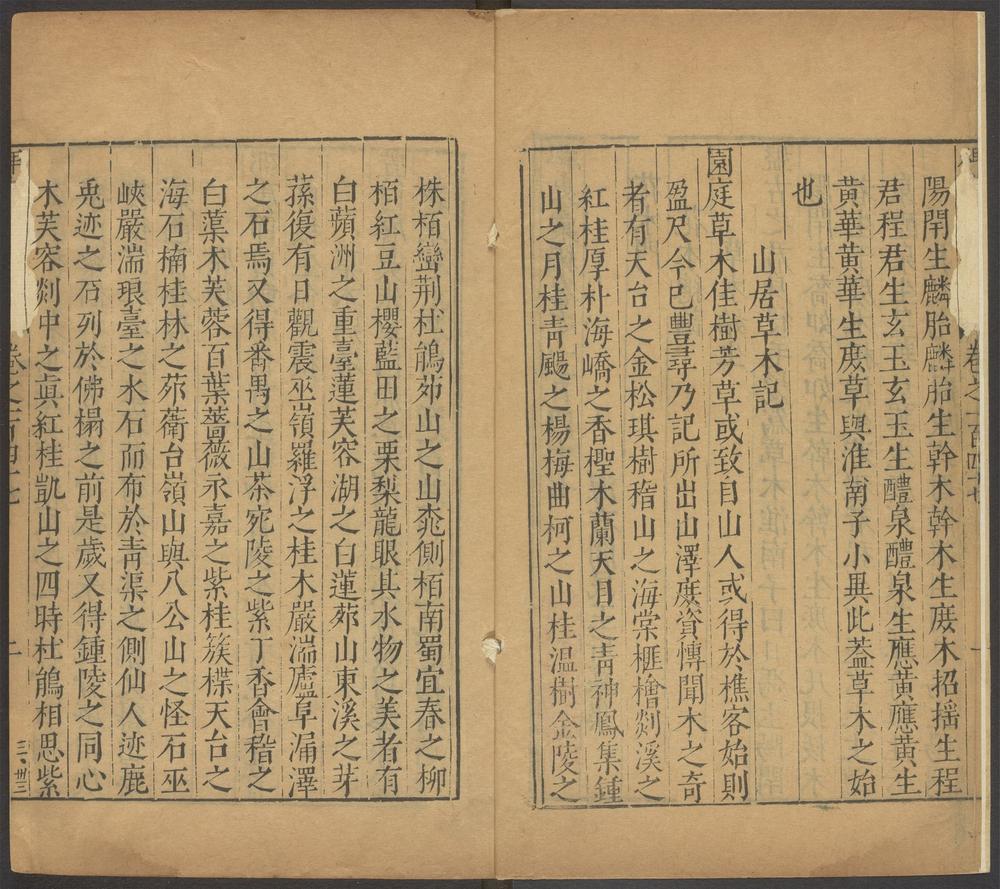 陽閼生麟胎麟胎生幹木幹木生庶木招揺生程
君程君生玄玉玄玉生醴泉醴泉生應黃應黃生
黃華黃華生庶草與淮南子小異此蓋草木之始
也
山居草木記
園庭草木佳樹芳草或致自山人或得於樵客始則
盈尺今已豐尋乃記所出山澤庶資愽聞木之奇
者有天台之金松琪樹稽山之海棠榧檜剡溪之
紅桂厚朴海嶠之香檉木蘭天目之青神鳳集鍾
山之月桂青颸之楊梅曲柯之山桂溫樹金陵之
株栢巒荆杜鵑茆山之山桃側栢南蜀宜春之柳
栢紅豆山櫻藍田之栗梨龍眼其水物之美者有
白蘋洲之重臺蓮芙容湖之白蓮茆山東溪之芽
蓀復有日觀震巫嶺羅浮之桂木嚴湍廬阜漏澤
之石焉又得番禺之山茶宛陵之紫丁香會稽之
白蕖木芙蓉百葉薔薇永嘉之紫桂簇楪天台之
海石楠桂林之茆蘅台嶺山與八公山之怪石巫
峽嚴湍琅臺之水石而布於青渠之側仙人迹鹿
兎迹之石列於佛榻之前是歲又得鍾陵之同心
木芙容剡中之眞紅桂凱山之四時杜鵑相思紫
卷之一百四十七
一
卷之一百四十七
二